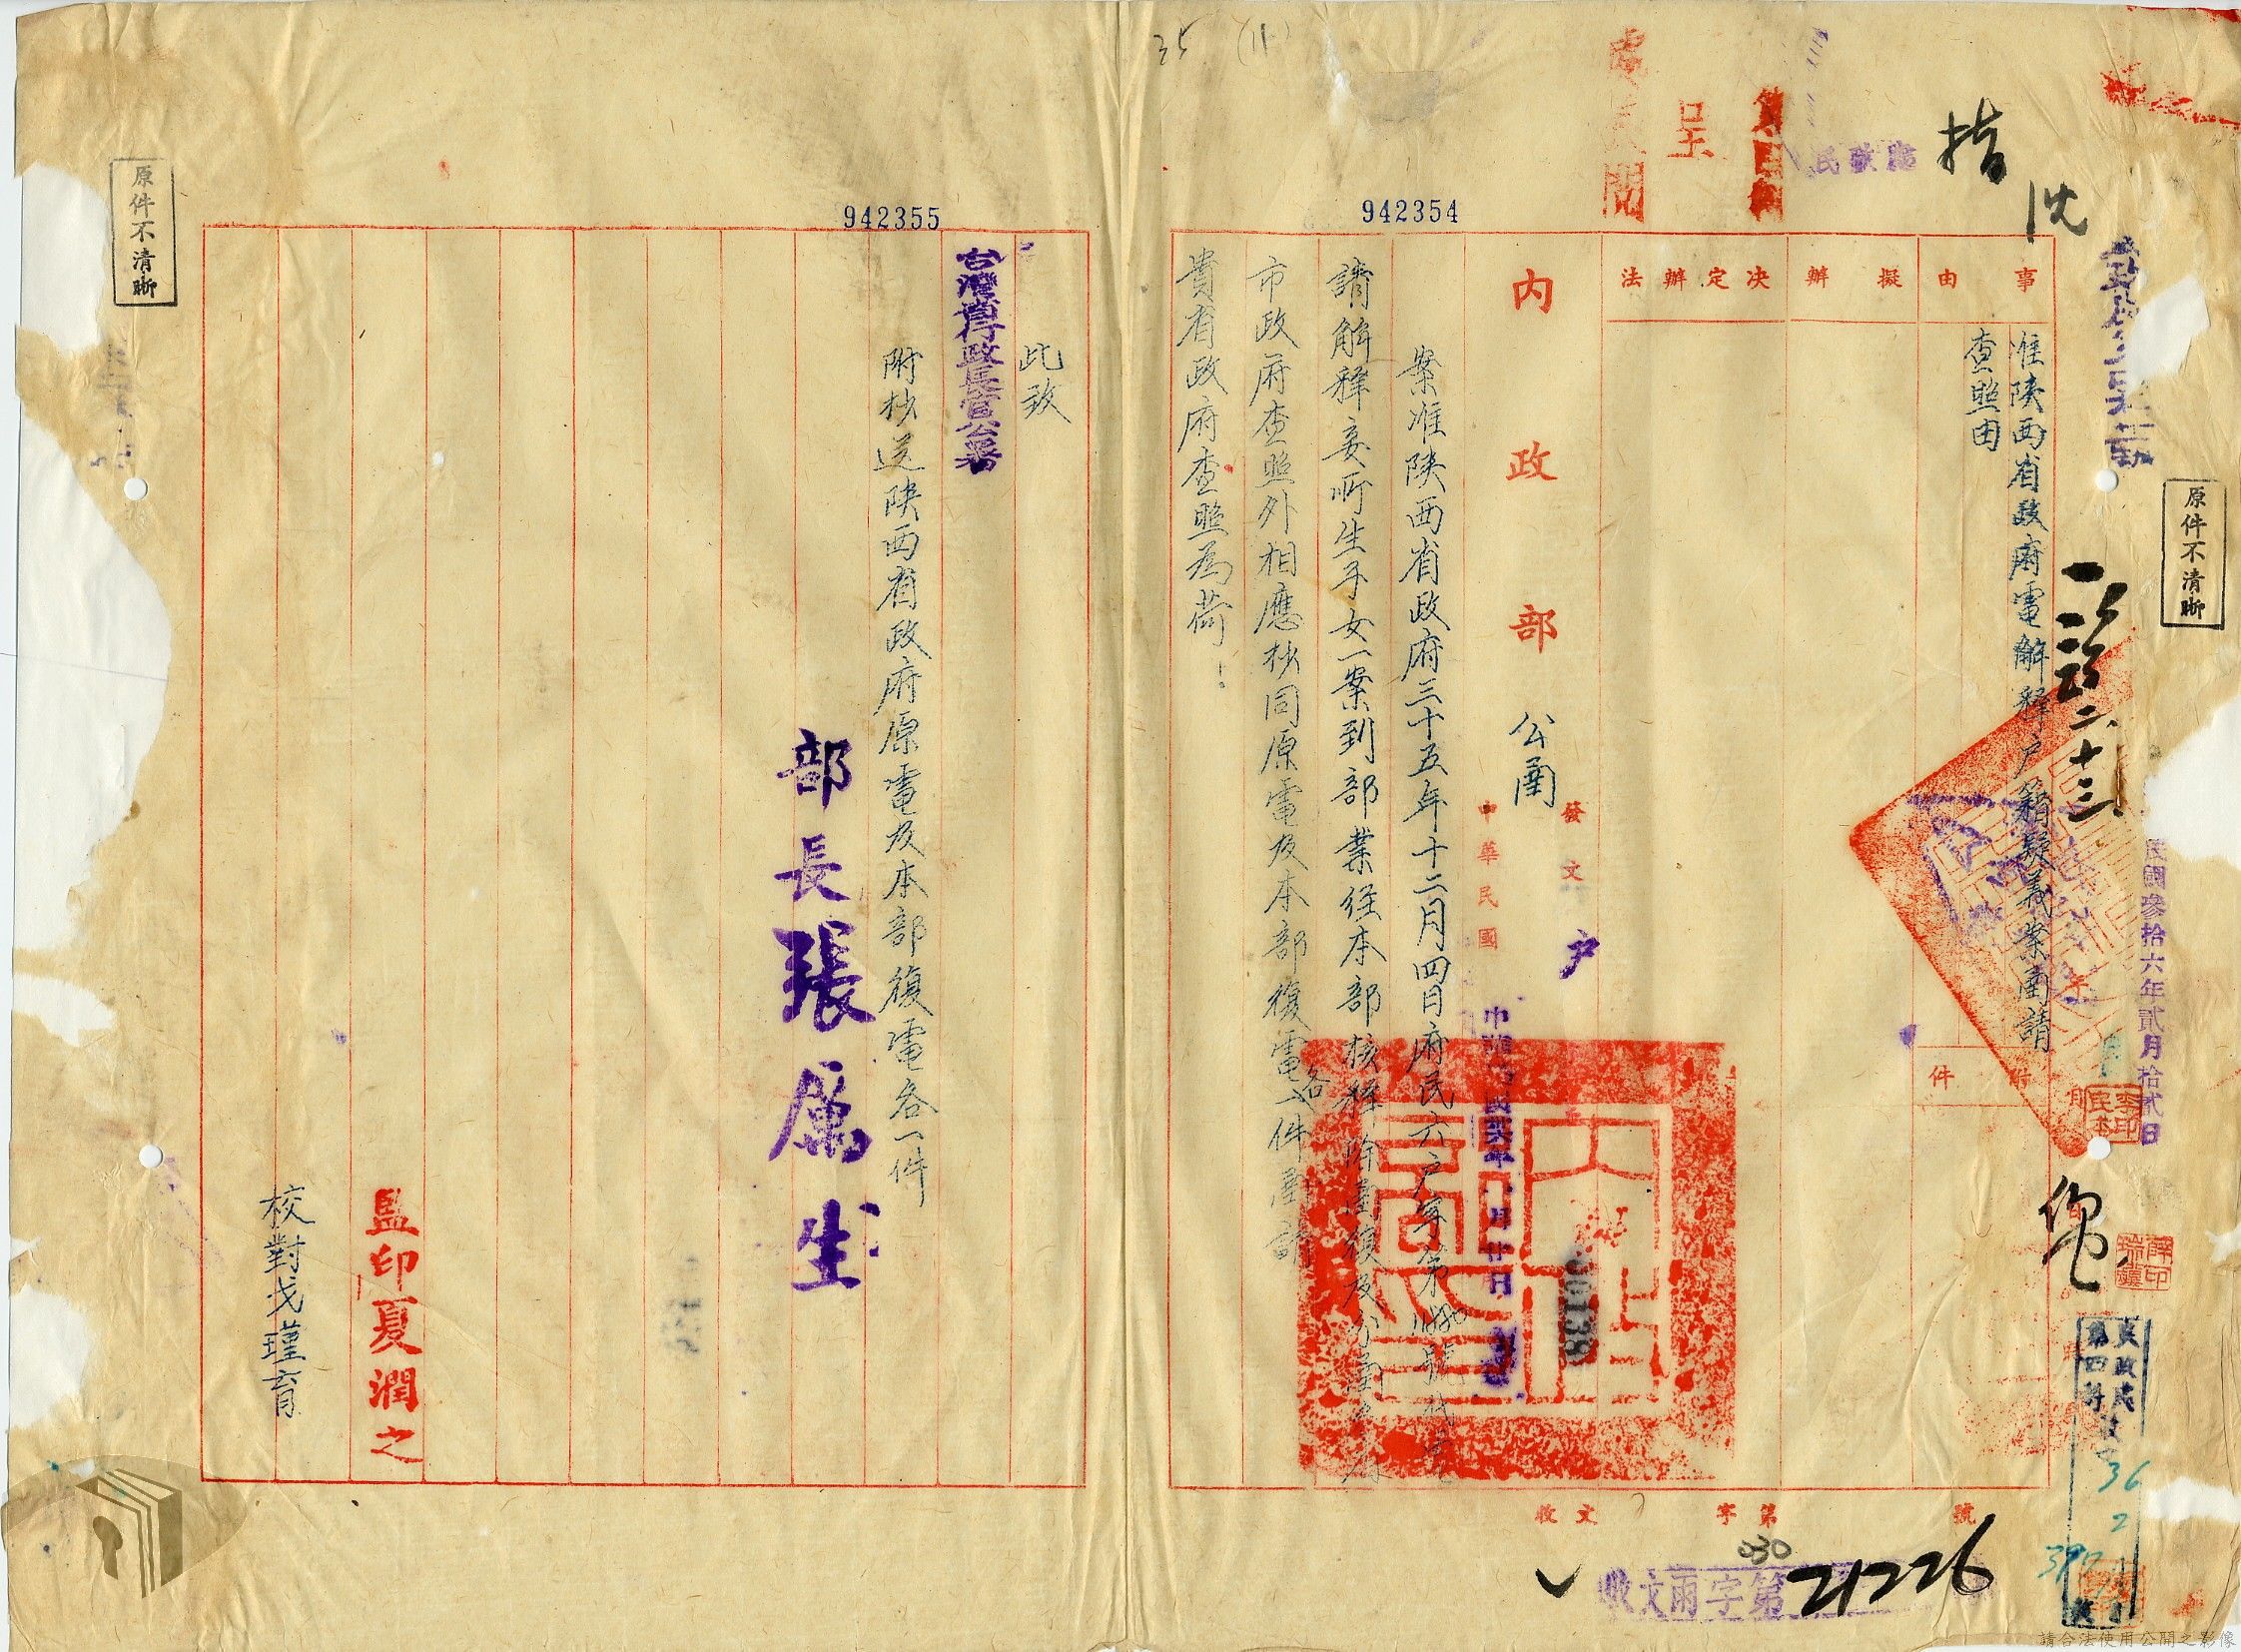 35 (11)
呈
民政處
指
沈
942354
942355
原件不清晰
原件不清晰
事由
擬辦
決定辦法
准陝西省政府電解釋戶籍疑義業函請
查照由
附件
內政部
公函
發文
戶
30138
中華民國
案准陝西省政府三十五年十二月四日府民六戶字第
號代電
請解釋妾所生子女一案到部業經本部核釋除函復及分函
市政府查照外相應抄同原電及本部復電各一件函請
貴省政府查照為荷!
此致
台灣省行政長官公署
附抄送陝西省政府原電及本部復電各一件
部長張厲生
監印夏潤之
校對戈瑾育
民國參拾六年貳月拾貳日
二十三
民政處
第四科
36
2
收文 字第 號
030
收文雨字第
21226
請合法使用公開之影像